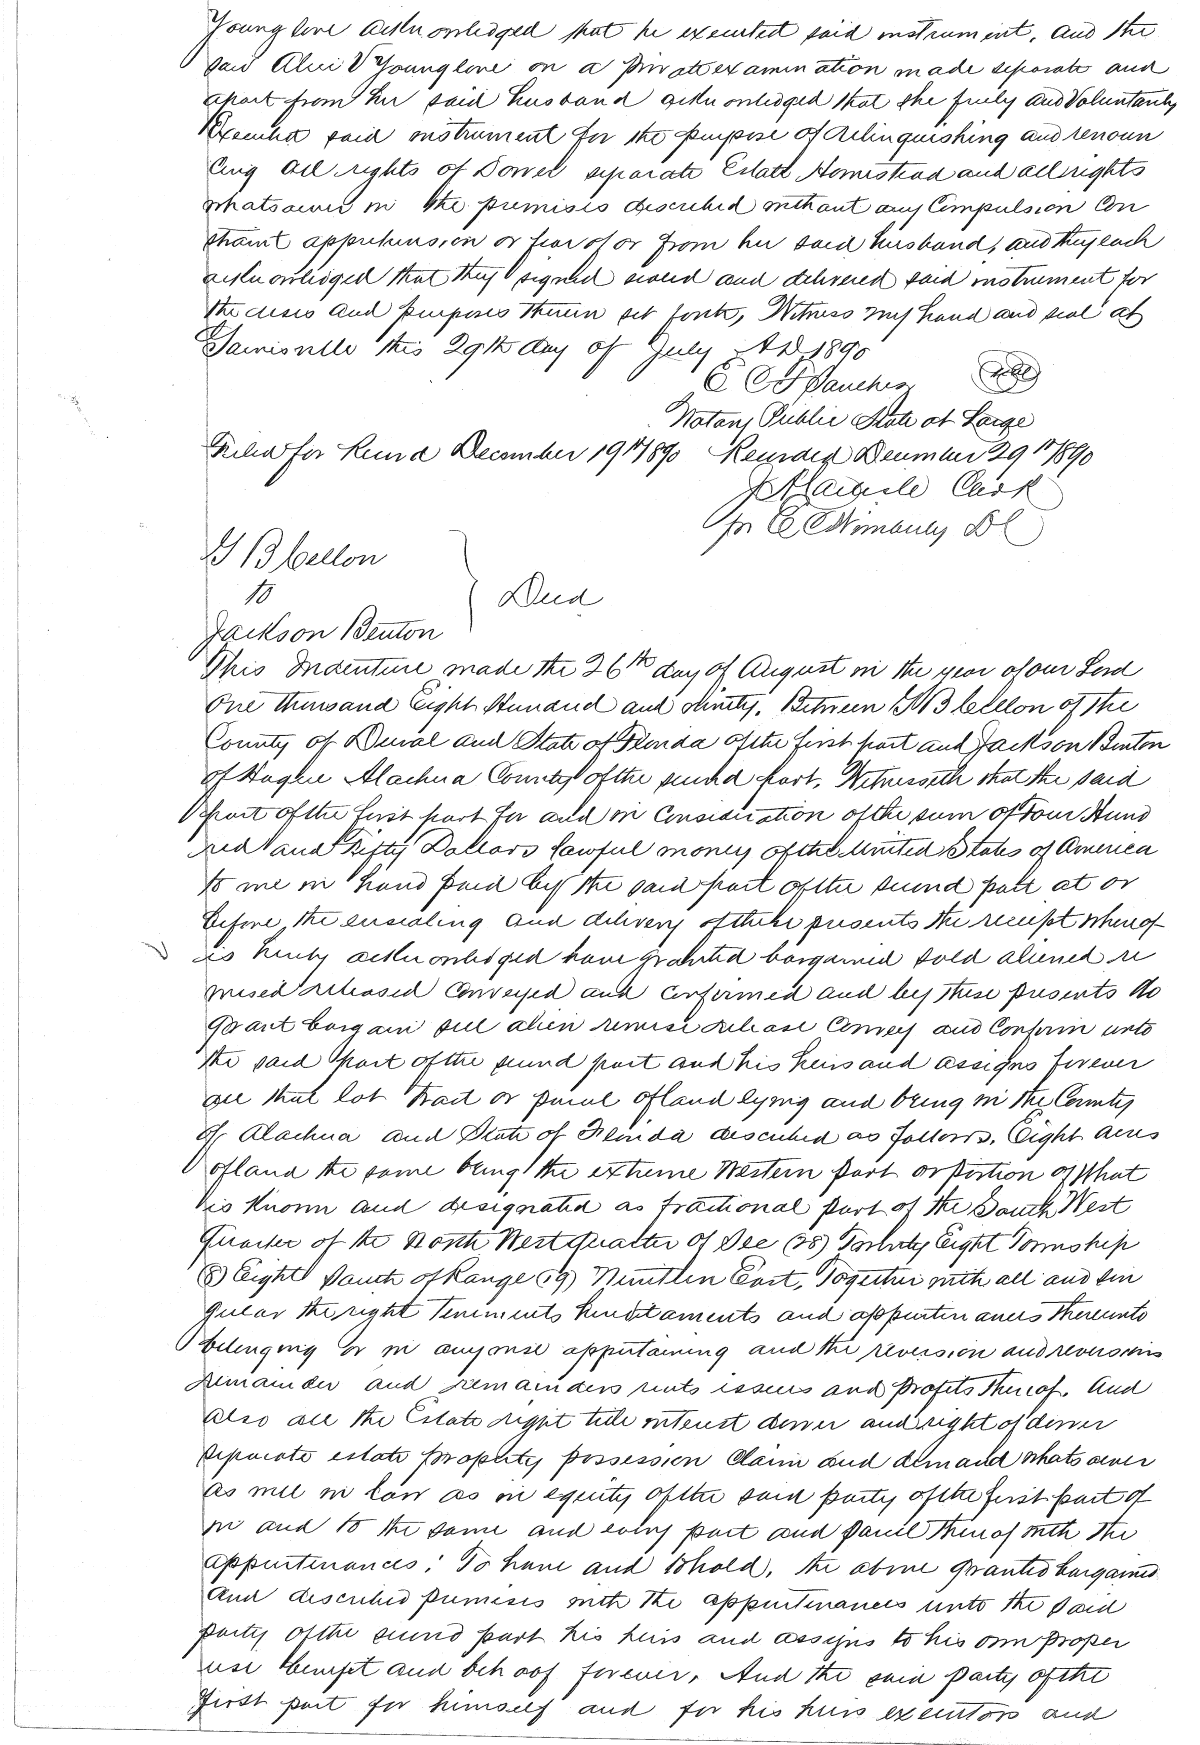 Younglove acknowledged that he executed said instrument, and the
said Alice V Younglove on a private examination made separate and
apart from her said husband acknowledged that she freely and Voluntarily
Executed said instrument for the purpose of relinquishing and renoun
cing all rights of Dower separate Estate Homestead and all rights
whatsoever in the premises described without any Compulsion Con
straint apprehension or fear of or from her said husband, and they each
acknowledged that they signed sealed and delivered said instrument for
the uses and purposes therein set forth, Witness my hand and seal at
Gainesville this 29th day of July A D, 1890
E C F Sanchez seal
Notary Public State at Large
Filed for Record December 19th 1890 Recorded December 29th 1890
Clerk
pr E C DC
G B Cellon
to
Deed
Jackson Benton
This Indenture made the 26th day of August in the year of our Lord
One thousand Eight Hundred and ninety, Between G B Cellon of the
County of Duval and State of Florida of the first part and Jackson Benton
of Hague Alachua County of the second part, Witnesseth that the said
part of the first part for and in Consideration of the sum of Four Hund
red and Fifty Dollars lawful money of the United States of America
to me in hand paid by the said part of the second part at or
before the ensealing and delivery of these presents the receipt whereof
is hereby acknowledged have granted bargained sold aliened re
mised released Conveyed and confirmed and by these presents do
grant bargain sell alien remise release Convey and Confirm unto
the said part of the second part and his heirs and assigns forever
all that lot tract or parcel of land lying and being in the County
of Alachua and State of Florida described as follows, Eight acres
of land the same being the extreme Western part or portion of What
is known and designated as fractional part of the South West
Quarter of the North West Quarter of Sec (28) Twenty Eight Township
(8) Eight South of Range (19) Nineteen East, Together with all and sin
gular the right Tenements hereditaments and appurtenances thereunto
belonging or in anywise appertaining and the reversion and reversions
remainder and remainders rents issues and profits thereof. And
also all the Estate right title interest dower and right of dower
separate estate property possession Claim and demand whatsoever
as well in law as in equity of the said party of the first part of
in and to the same and every part and parcel thereof with the
appurtenances: To have and to hold, the above granted bargained
and described premises with the appurtenances unto the said
party of the second part his heirs and assigns to his own proper
use benefit and behoof forever, And the said party of the
first part for himself and for his heirs executors and